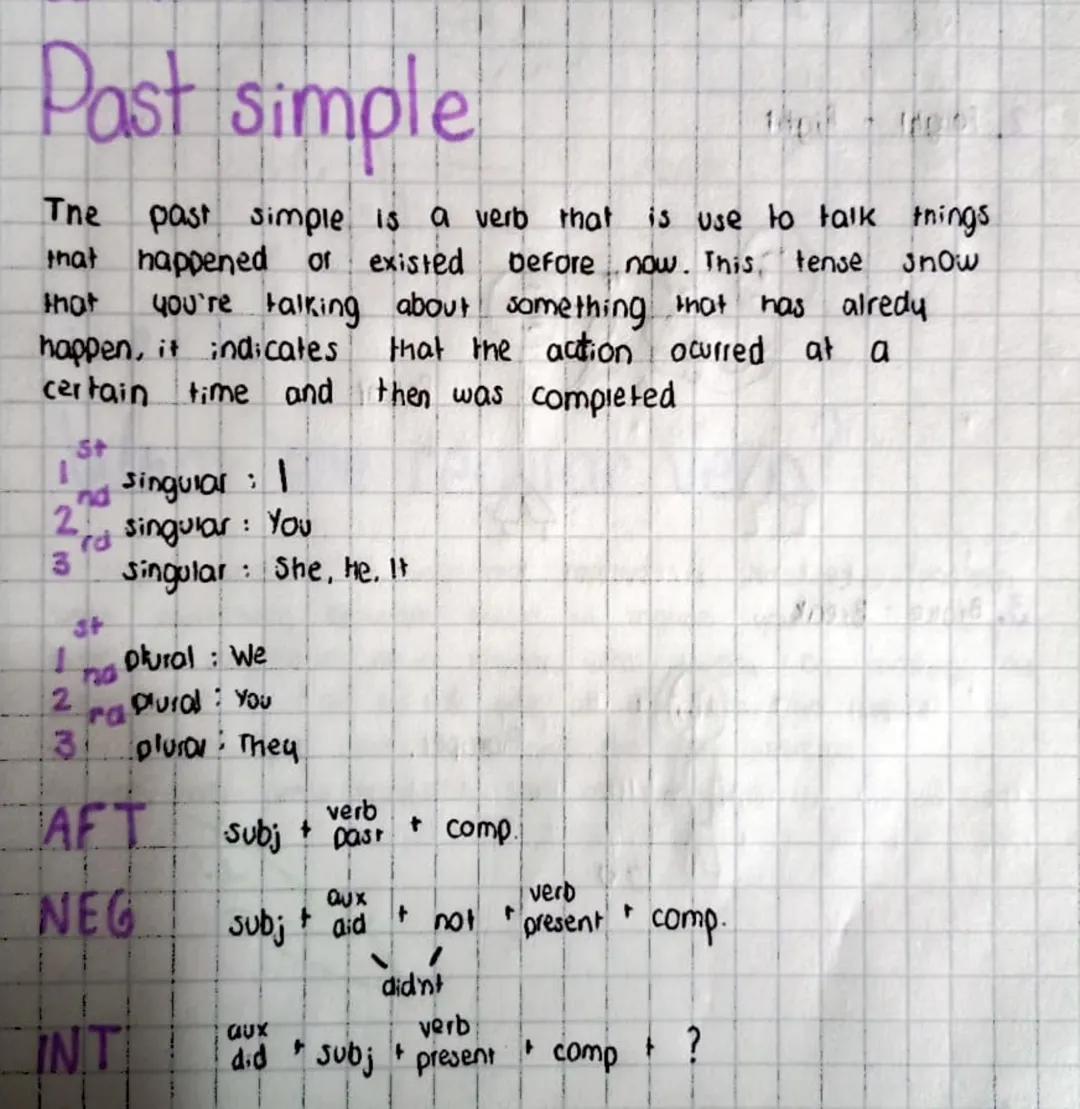 Past simple
The past simple is a verb that is use to talk things
that happened or existed before now. This tense show
that you're talking about something that has alredy
happen, it indicates that the action ocurred at a
certain time and then was completed
1st singular : I
2nd singular : You
3rd singular : She, He, It
1st plural : We
2nd plural : You
3rd plural : They
AFT subj + verb past + comp.
NEG subj + aux did + not + verb present + comp.
didn't
INT aux did + subj + verb present + comp + ?